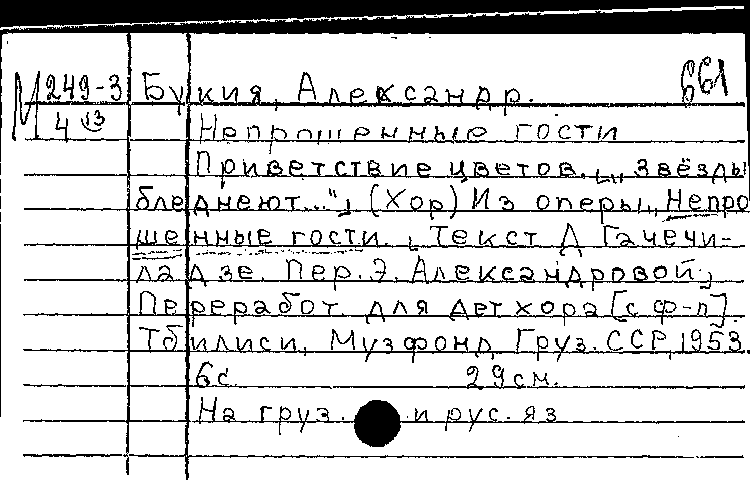 М 249-3 Букия, Александр. 661
4 13 Непрошенные гости
Приветствие цветов. „Звёзды
бледнеют..." (Хор) Из оперы „Непро
шенные гости. Текст Д Гачечи-
ладзе. Пер. Э. Александровой
Переработ. для дет хора [с ф-п].
Тбилиси, Музфонд Груз. ССР, 1953.
6с 29см.
На груз. и рус. яз